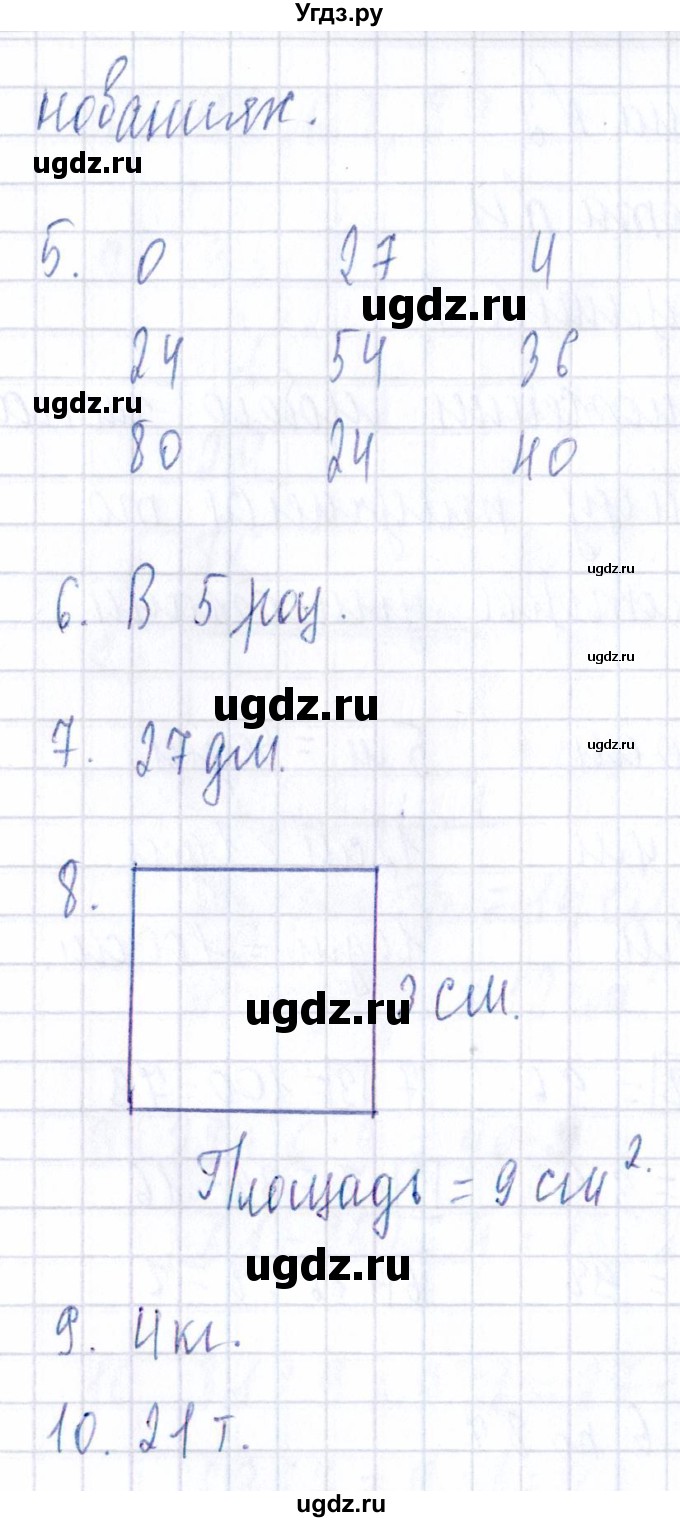 Угдз.ру
нованиях.
ugdz.ru
5. 0 27 4
ugdz.ru
24 54 36
ugdz.ru
80 24 40
ugdz.ru
6. В 5 раз.
ugdz.ru
ugdz.ru
7. 27 дм.
ugdz.ru
8.
3 см.
ugdz.ru
Площадь = 9 см².
ugdz.ru
9. 4 кг.
10. 21 т.
ugdz.ru